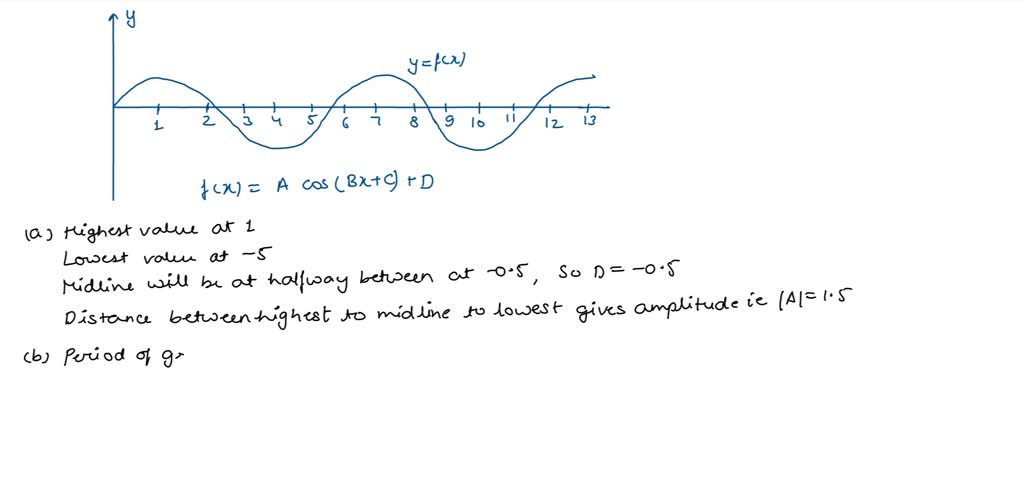 y
y=f(x)
1 2 3 4 5 6 7 8 9 10 11 12 13
f(x) = A cos(Bx+C) + D
(a) Highest value at 1
Lowest value at -5
Midline will be at halfway between at -0.5, So D = -0.5
Distance between highest to midline to lowest gives amplitude ie |A|= 1.5
(b) Period of gr